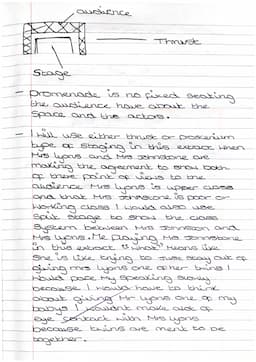 audience
Thrust
Stage
- promenade is no fixed seating
the audience have about the
space and the actors.
- I will use either thrust or proscenium
type of staging in this extract when
Mrs Lyons and Mrs Johnstone are
making the agreement to show both
of there point of views to the
audience Mrs Lyons is upper class
and that Mrs Johnstone is poor or
working class I would also use
Split Stage to show the class
System between Mrs Johnston and
Mrs Lyons. Me playing Mrs Johnstone
in this extract I would Means like
She is like trying to just stay out of
giving mrs Lyons one of her twins I
Would pace My speaking slowly
because I would have to think
about giving Mr Lyons one of my
babys I wouldnt make alot of
eye contact with Mrs Lyons
because twins are ment to be
together.